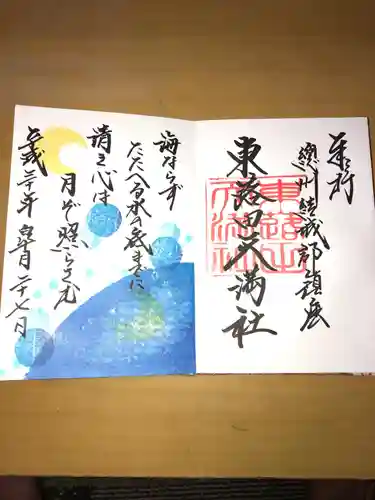 奉拝
總州結城郡鎮座
東蕗田天満社
海ならず
たたへる水の底までに
清き心は
月ぞ照らさむ
平成三十年 二十七日